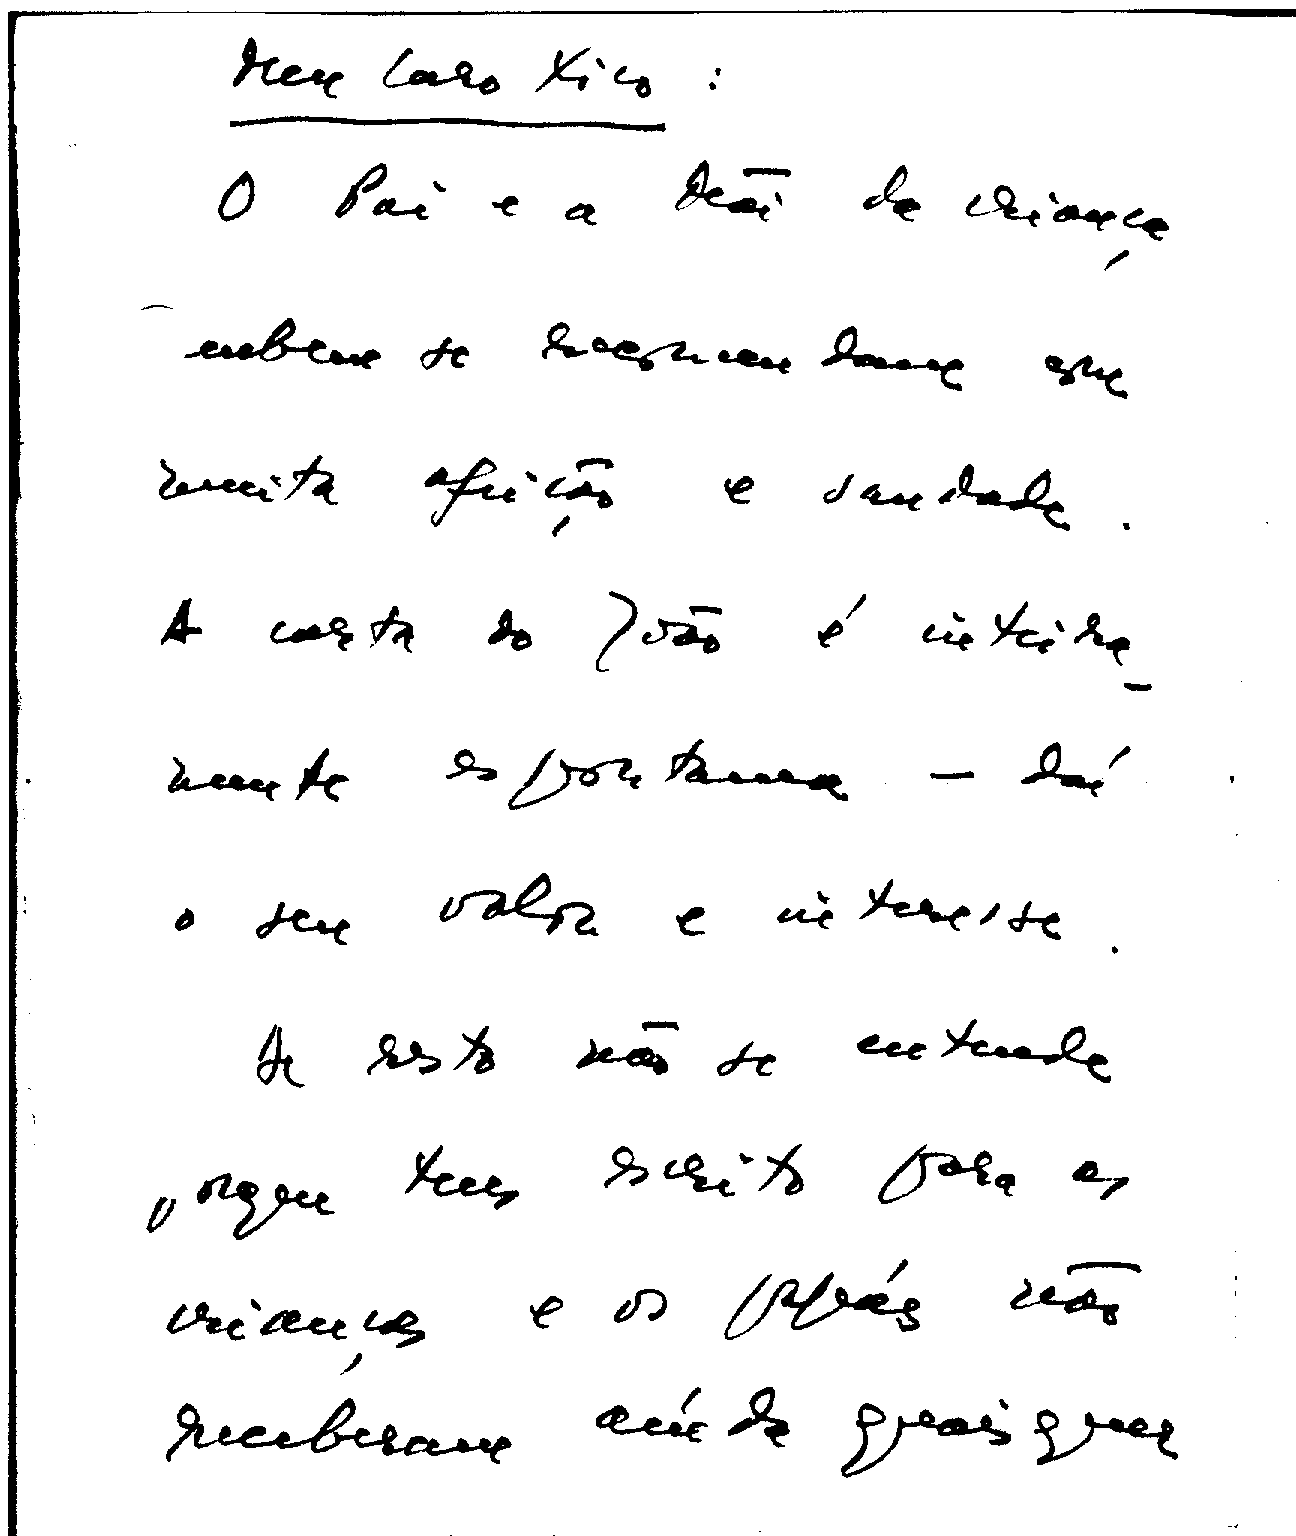 Meu Caro Xico :
O Pai e a Mãi da criança
se recomendam com
muita afeição e saudade.
A carta do João é inteira-
mente espontanea — daí
o seu valor e interesse.
De resto não se entende
porque tens escrito para as
crianças e os papás não
receberam ainda quaisquer